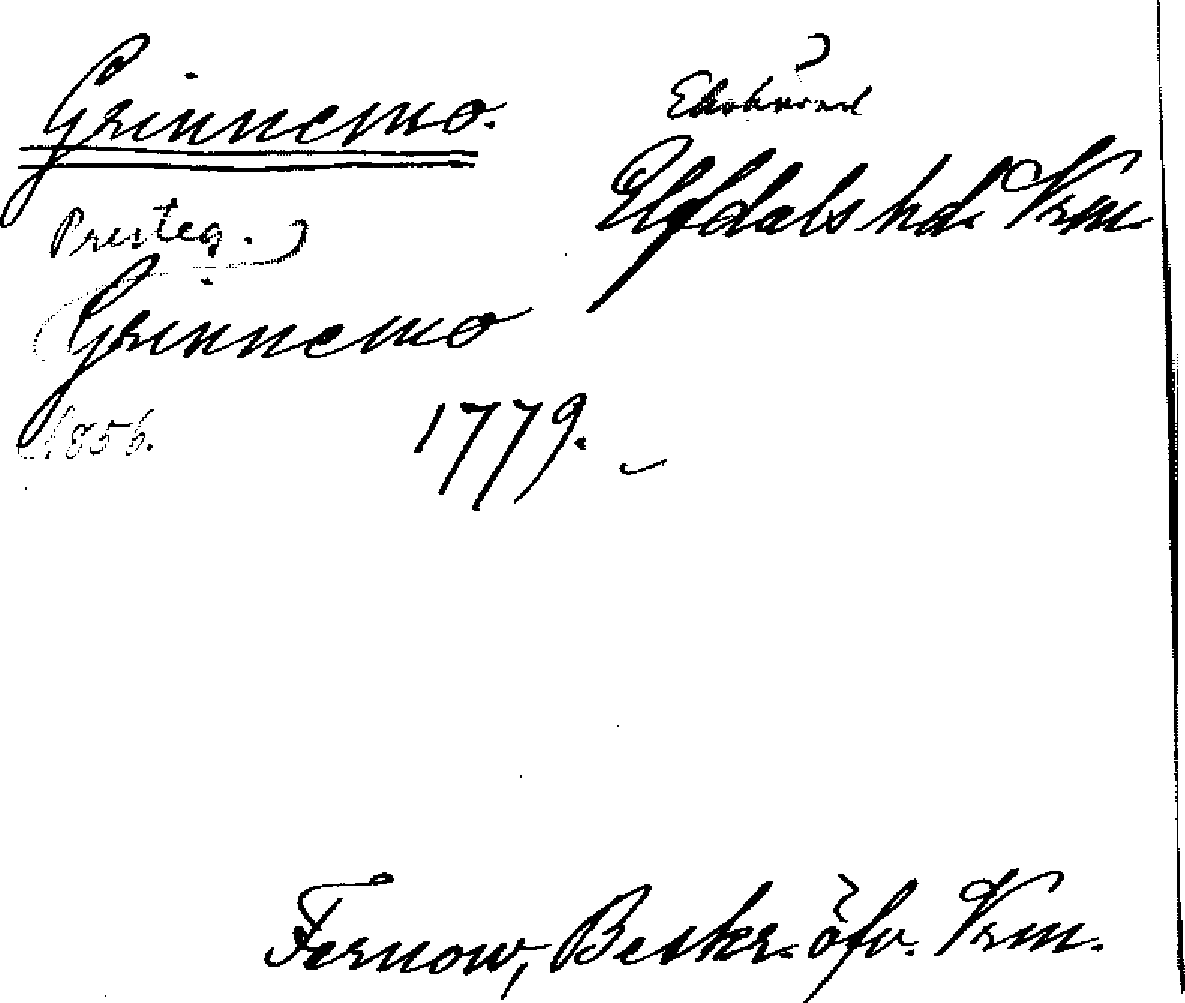 Grinnemo.
Ekshärad
Elfdals hd. Vrm.
Presteg.
Grinnemo
1856.
1779.
Fernow, Beskr. öfv. Vrm.